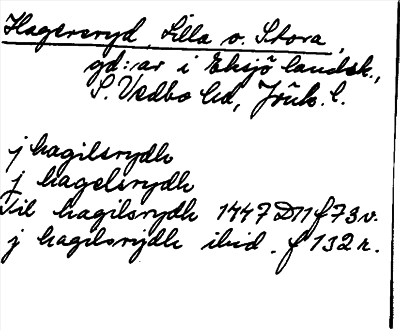 Hagersryd, Lilla o. Stora,
gd:ar i Eksjö landsk.,
S. Vedbo hd, Jönk. l.
j hagilsrydh
j hagelsrydh
Til hagilsrydh 1447 D11 f 73 v.
j hagilsrydh ibid. f 132 r.